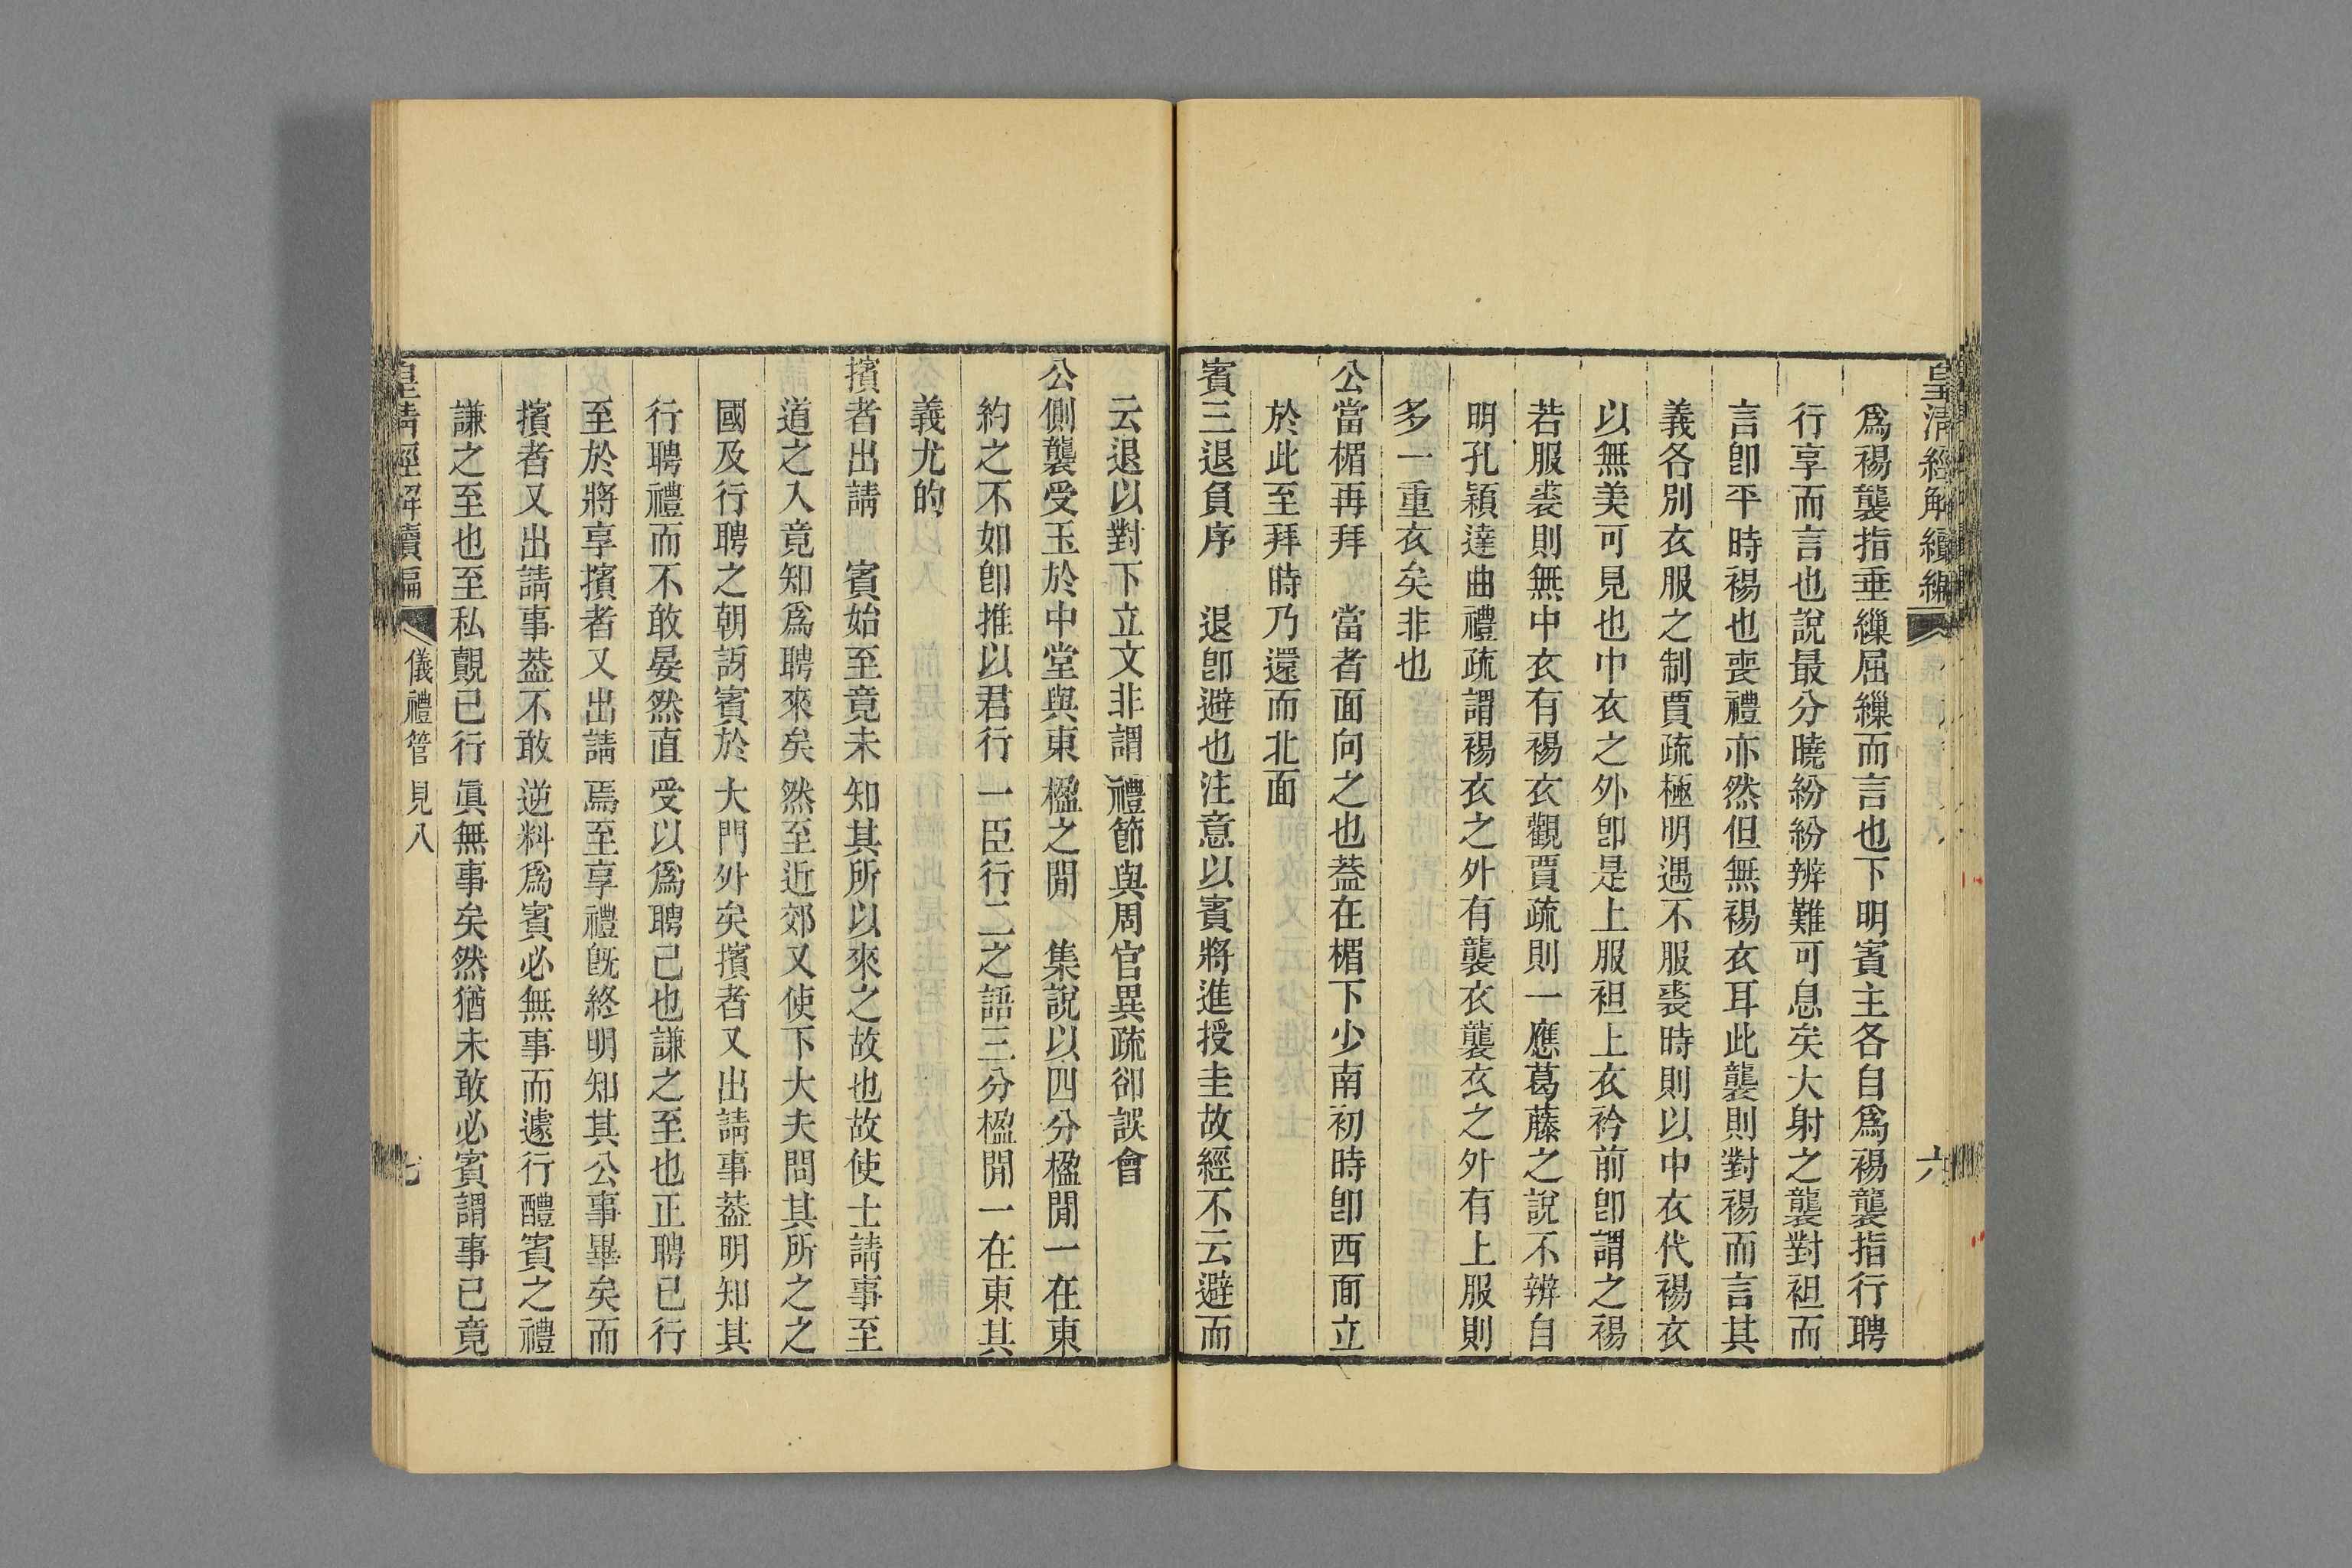 皇清經解續編
六
爲裼襲指垂繅屈繅而言也下明賓主各自爲裼襲指行聘
行享而言也說最分曉紛紛辨難可息矣大射之襲對袒而
言卽平時裼也喪禮亦然但無裼衣耳此襲則對裼而言其
義各別衣服之制賈疏極明遇不服裘時則以中衣代裼衣
以無美可見也中衣之外卽是上服袒上衣衿前卽謂之裼
若服裘則無中衣有裼衣觀賈疏則一應葛藤之說不辨自
明孔穎達曲禮疏謂裼衣之外有襲衣襲衣之外有上服則
多一重衣矣非也
公當楣再拜　當者面向之也葢在楣下少南初時卽西面立
於此至拜時乃還而北面
賓三退負序　退卽避也注意以賓將進授圭故經不云避而
云退以對下立文非謂禮節與周官異疏卻誤會
公側襲受玉於中堂與東楹之閒　集說以四分楹閒一在東
約之不如卽推以君行一臣行二之語三分楹閒一在東其
義尤的
擯者出請　賓始至竟未知其所以來之故也故使士請事至
道之入竟知爲聘來矣然至近郊又使下大夫問其所之之
國及行聘之朝訝賓於大門外矣擯者又出請事葢明知其
行聘禮而不敢晏然直受以爲聘己也謙之至也正聘已行
至於將享擯者又出請焉至享禮旣終明知其公事畢矣而
擯者又出請事葢不敢逆料爲賓必無事而遽行醴賓之禮
謙之至也至私覿已行眞無事矣然猶未敢必賓謂事已竟
皇清經解續編
儀禮管見八
七